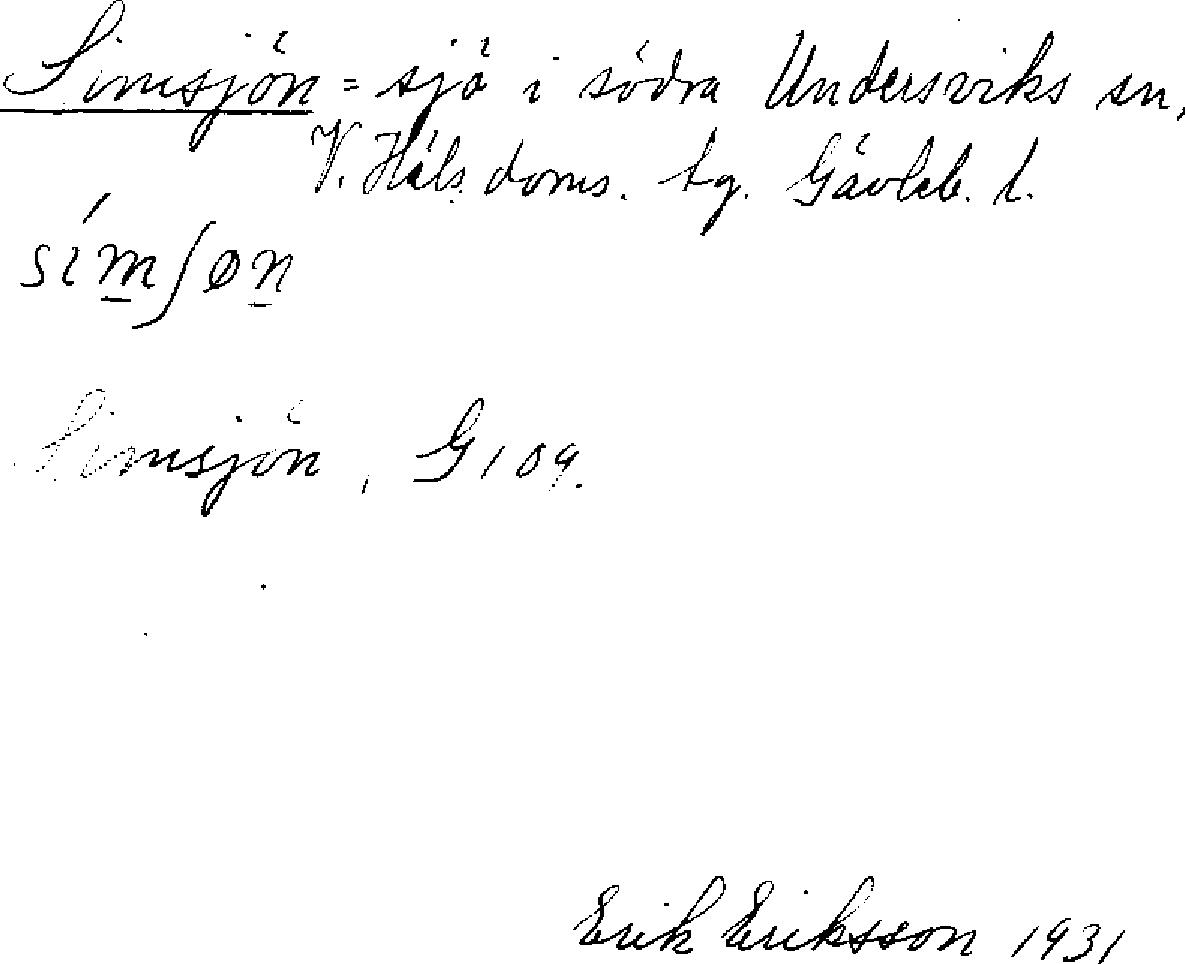 Simsjön = sjö i södra Undersviks sn,
V. Häls. doms. tg. Gävleb. l.
símʃøn
Simsjön, G 109.
Erik Eriksson 1931